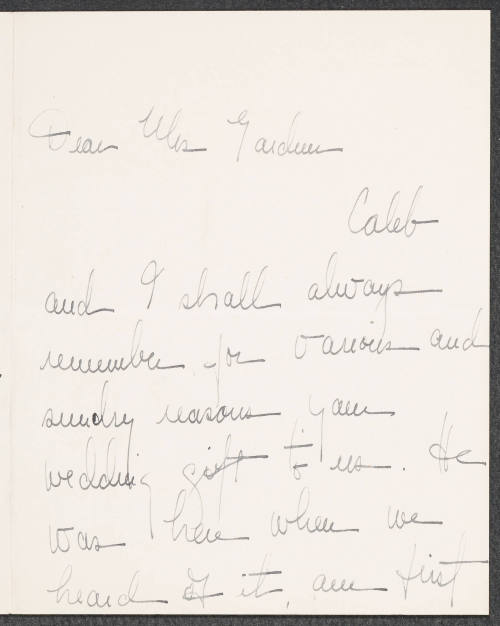 Dear Mrs Gardner
Caleb
and I shall always
remember for various and
sundry reasons your
wedding gift to us. He
was here when we
heard of it, our first